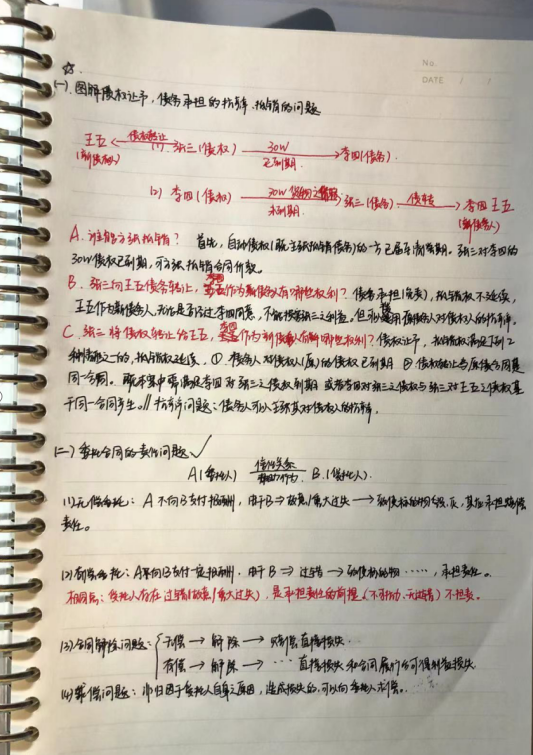 No.
DATE / /
☆.
(一). 图解债权让予,债务承担的抗辩、抵销的问题
王五 ←债权转让 (1) 张三(债权) 30W 已到期 → 李四(债务).
(新债权人)
(2) 李四(债权) 30W 未到期 → 张三(债务) 债转 → 王五
(新债务人)
A. 谁能主张抵销? 首先,自动债权(既主张抵销债务)的一方已届车清偿期。张三对李四的
30W债权已到期,可主张抵销合同价款。
B. 张三向王五债务转让,王五作为新债务人有哪些权利? 债务承担(免责),抵销权不延续,
王五作为新债务人,无论是否经过李四同意,不能援张三之利益。但可以援用原债务人对债权人的抗辩。
C. 张三将债权转让给王五,作为新债权人有哪些权利? 债权让予,抵销权满足下列2
种情形之一的,抵销权延续,① 债务人对债权人(原)的债权已到期 ② 债权转让与原债合同是
同一合同。既本案中需满足李四对张三之债权到期 或者李四对张三之债权与张三对王五之债权基
于同一合同产生。// 抗辩问题:债务人可以主张其对债权人的抗辩。
(二) 委托合同的责任问题 ✓
A(委托人) 信任关系 B.(受托人).
(1)无偿委托: A 不向B支付报酬,由于B⇒故意/重大过失 → 致使标的物毁、灭,其应承担赔偿
责任。
(2)有偿委托: A向B支付一定报酬。由于 B ⇒ 过错 → 致使标的物……,承担责任。
相同点:受托人存在过错(故意/重大过失),是承担责任的前提(不可抗力、无过错)不担责。
(3)合同解除问题: 无偿 → 解除 → 赔偿直接损失
有偿 → 解除 → … 直接损失和合同履行后可得利益损失
(4)赔偿问题: 非归因于受托人自身之原因,造成损失的,可以向委托人求偿。